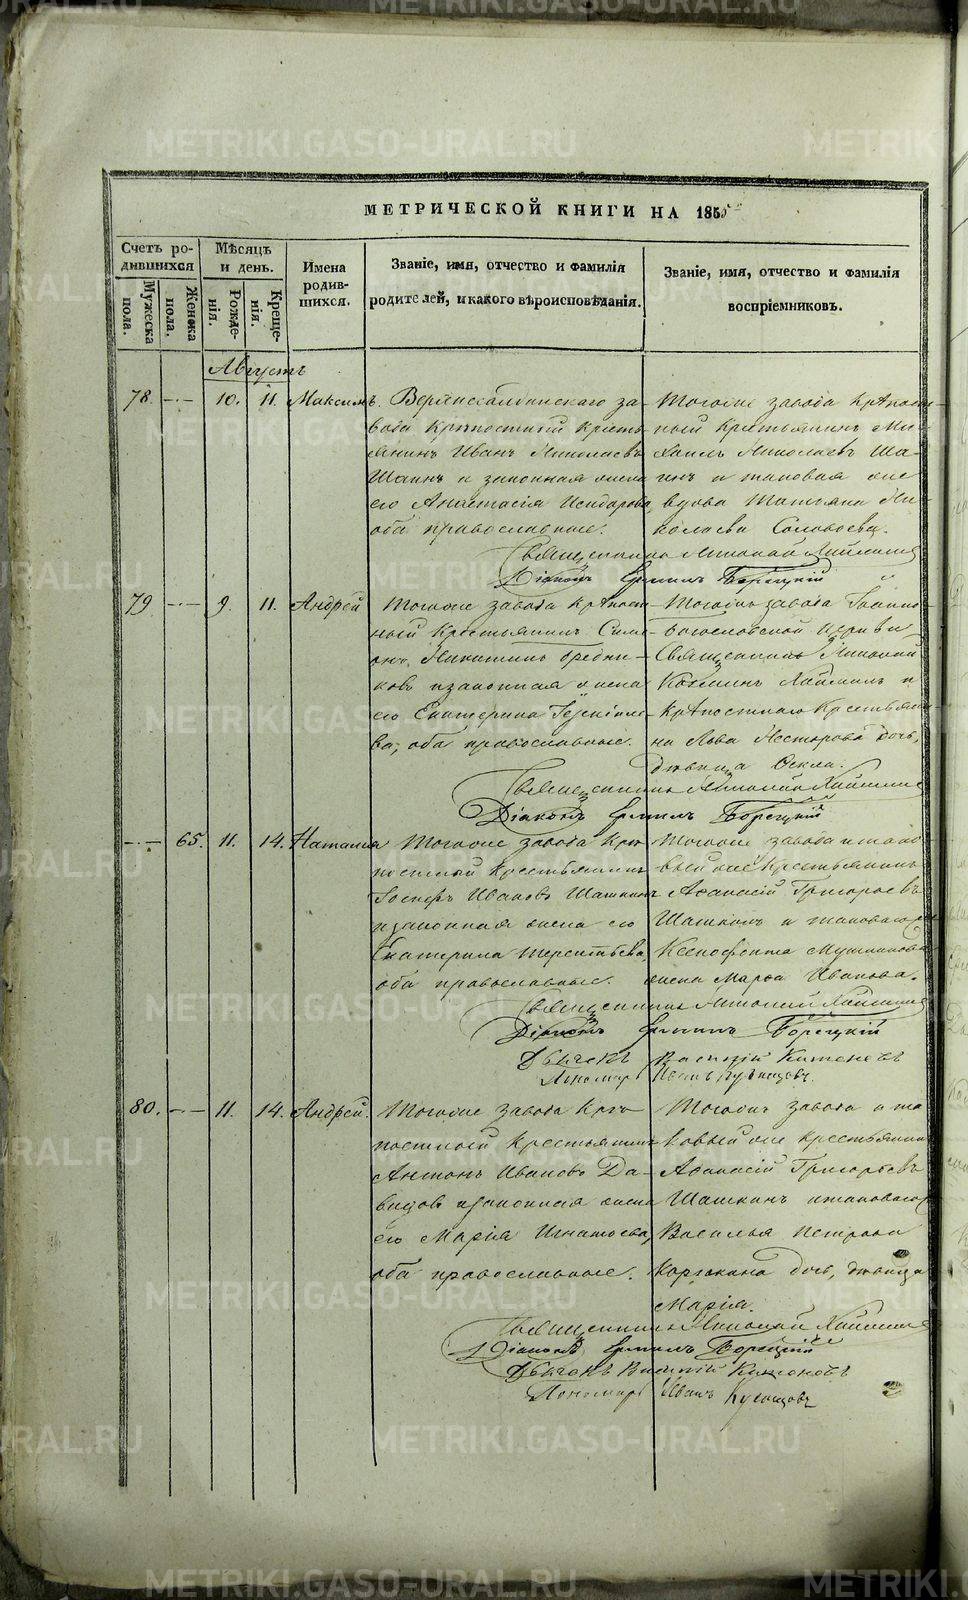 METRIKI.GASO-URAL.RU
МЕТРИЧЕСКОЙ КНИГИ НА 1855
Счетъ ро-
дившихся
Мужеска
пола.
Женска
пола.
Мѣсяцъ
и день.
Рожде-
нія.
Креще-
нія.
Имена
родив-
шихся.
Званіе, имя, отчество и фамилія
родителей, и какого вѣроисповѣданія.
Званіе, имя, отчество и фамилія
воспріемниковъ.
Августъ
78. 10. 11. Максимъ.
Верхнесалдинскаго за-
вода Крѣпостный кресть-
янинъ Иванъ Николаевъ
Шаинъ и законная жена
его Анастасія Исидорова,
оба православные.
Тогоже завода Крѣпост-
ный Крестьянинъ Ми-
хаилъ Николаевъ Ша-
инъ и таковая же
вдова Татьяна Ни-
колаева Соловьева.
Священникъ Николай
Діаконъ Борецкій
79 9. 11. Андрей
Тогоже завода Крѣпост-
ный Крестьянинъ Симе-
онъ Никитинъ
и законная жена
его Екатерина
ва, оба православные.
Тогоже завода Іоанно-
Богословской церкви
Священникъ Николай
Козминъ и
Крѣпостнаго Крестьяни-
на Льва Нестерова дочь,
дѣвица Фекла.
Священникъ Николай
Діаконъ Борецкій
65. 11. 14. Наталия
Тогоже завода Крѣ-
постный Крестьянинъ
Іосифъ Ивановъ Шашкинъ
и законная жена его
Екатерина Терентьева,
оба православные.
Тогоже завода и тако-
вый же Крестьянинъ
Афанасій Григорьевъ
Шашкинъ и таковаго же
Ксенофонта
жена Марфа Иванова.
Священникъ Николай
Діаконъ Борецкій
Дьячекъ Василій
Пономарь Иванъ Кузнецовъ.
80. 11. 14. Андрей.
Тогоже завода Крѣ-
постный Крестьянинъ
Антонъ Ивановъ Да-
выдовъ и законная жена
его Марія Игнатьева,
оба православные.
Тогоже завода и та-
ковый же крестьянинъ
Афанасій Григорьевъ
Шашкинъ и таковаго же
Василья Петрова
Корякина дочь, дѣвица
Марія.
Священникъ Николай
Діаконъ Борецкій
Дьячекъ Василій
Пономарь Иванъ Кузнецовъ